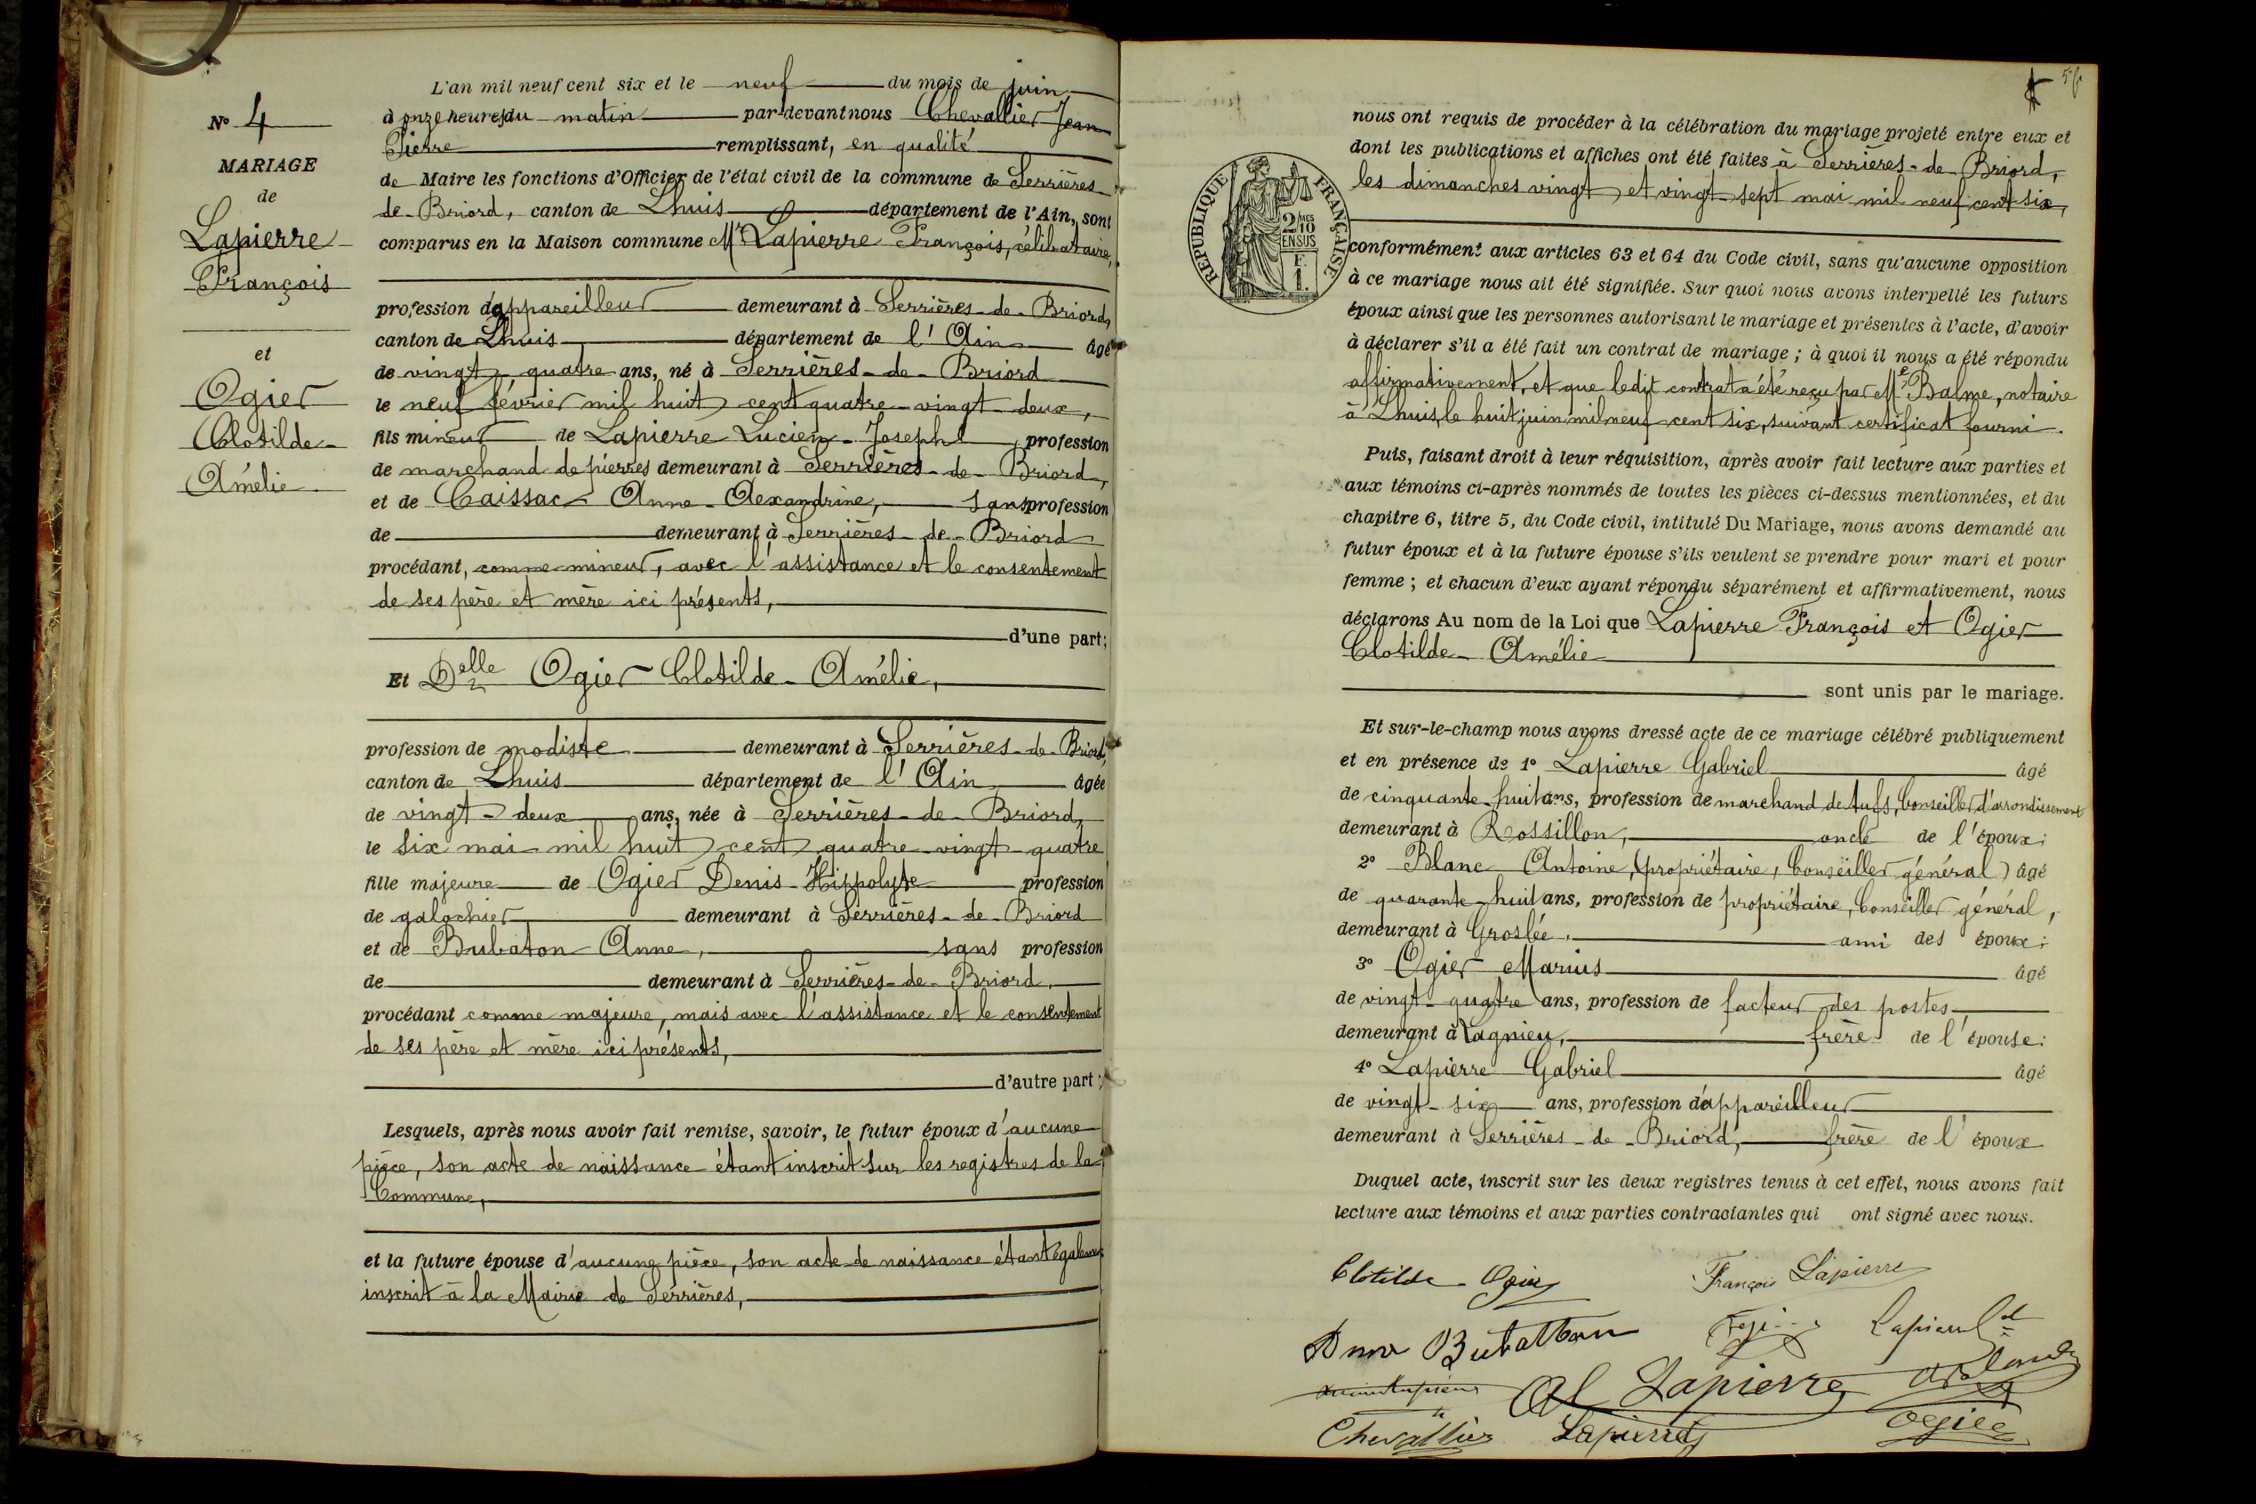 N° 4
MARIAGE
de
Lapierre
François
et
Ogier
Clotilde-
Amélie
L'an mil neuf cent six et le neuf du mois de juin
à onze heures du matin par devant nous Chevallier Jean
Pierre remplissant, en qualité
de Maire les fonctions d'Officier de l'état civil de la commune de Serrières-
de-Briord, canton de Lhuis département de l'Ain, sont
comparus en la Maison commune Mr Lapierre François, célibataire,
profession d'appareilleur demeurant à Serrières-de-Briord,
canton de Lhuis département de l'Ain âgé
de vingt-quatre ans, né à Serrières-de-Briord
le neuf février mil huit cent quatre-vingt-deux,
fils mineur de Lapierre Lucien-Joseph, profession
de marchand de pierres demeurant à Serrières-de-Briord,
et de Caissac Anne-Alexandrine, sans profession
de demeurant à Serrières-de-Briord
procédant, comme mineur, avec l'assistance et le consentement
de ses père et mère ici présents,
d'une part;
Et Delle Ogier Clotilde-Amélie,
profession de modiste demeurant à Serrières-de-Briord,
canton de Lhuis département de l'Ain âgée
de vingt-deux ans, née à Serrières-de-Briord,
le six mai mil huit cent quatre-vingt-quatre
fille majeure de Ogier Denis-Hippolyte profession
de galochier demeurant à Serrières-de-Briord
et de Bubaton Anne, sans profession
de demeurant à Serrières-de-Briord,
procédant comme majeure, mais avec l'assistance et le consentement
de ses père et mère ici présents,
d'autre part;
Lesquels, après nous avoir fait remise, savoir, le futur époux d'aucune
pièce, son acte de naissance étant inscrit sur les registres de la
Commune,
et la future épouse d'aucune pièce, son acte de naissance étant également
inscrit à la Mairie de Serrières,
56
RÉPUBLIQUE FRANÇAISE
2/10 MES
EN SUS
F.
1.
nous ont requis de procéder à la célébration du mariage projeté entre eux et
dont les publications et affiches ont été faites à Serrières-de-Briord,
les dimanches vingt et vingt-sept mai mil neuf cent six,
conformément aux articles 63 et 64 du Code civil, sans qu'aucune opposition
à ce mariage nous ait été signifiée. Sur quoi nous avons interpellé les futurs
époux ainsi que les personnes autorisant le mariage et présentes à l'acte, d'avoir
à déclarer s'il a été fait un contrat de mariage ; à quoi il nous a été répondu
affirmativement, et que ledit contrat a été reçu par Me Balme, notaire
à Lhuis, le huit juin mil neuf cent six, suivant certificat fourni.
Puis, faisant droit à leur réquisition, après avoir fait lecture aux parties et
aux témoins ci-après nommés de toutes les pièces ci-dessus mentionnées, et du
chapitre 6, titre 5, du Code civil, intitulé Du Mariage, nous avons demandé au
futur époux et à la future épouse s'ils veulent se prendre pour mari et pour
femme ; et chacun d'eux ayant répondu séparément et affirmativement, nous
déclarons Au nom de la Loi que Lapierre François et Ogier
Clotilde-Amélie
sont unis par le mariage.
Et sur-le-champ nous avons dressé acte de ce mariage célébré publiquement
et en présence de 1° Lapierre Gabriel âgé
de cinquante-huit ans, profession de marchand de tufs, Conseiller d'arrondissement
demeurant à Rossillon, oncle de l'époux;
2° Blanc Antoine, (propriétaire, Conseiller général) âgé
de quarante-huit ans, profession de propriétaire, Conseiller général,
demeurant à Groslée, ami des époux;
3° Ogier Marius âgé
de vingt-quatre ans, profession de facteur des postes,
demeurant à Lagnieu, frère de l'épouse;
4° Lapierre Gabriel âgé
de vingt-six ans, profession d'appareilleur
demeurant à Serrières-de-Briord, frère de l'époux
Duquel acte, inscrit sur les deux registres tenus à cet effet, nous avons fait
lecture aux témoins et aux parties contractantes qui ont signé avec nous.
Clotilde Ogier François Lapierre
Anne Bubatton Lapierre
Al Lapierre
Chevallier Lapierre Ogier